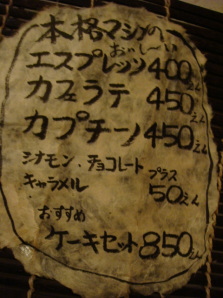 本格マシンの
おいし〜い
エスプレッソ400えん
カフェラテ 450えん
カプチーノ450えん
シナモン.チョコレート プラス
キャラメル 50えん
おすすめ
ケーキセット850えん